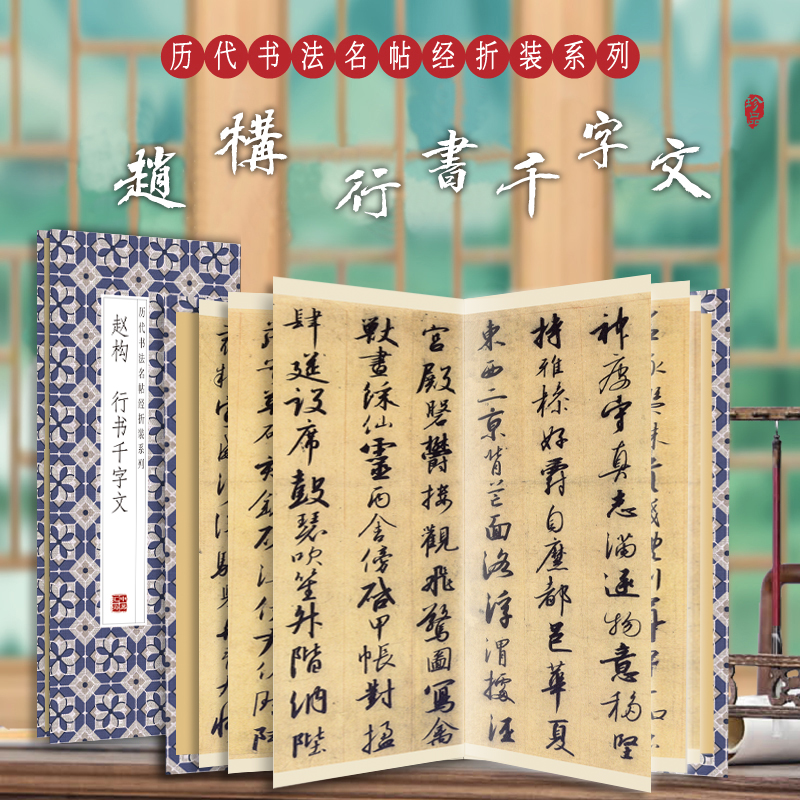 历代书法名帖经折装系列
趙構行書千字文
历代书法名帖经折装系列
赵构 行书千字文
神疲守真志滿逐物意移堅
持雅操好爵自縻都邑華夏
東西二京背芒面洛浮渭據涇
宮殿磐鬱接觀飛驚圖寫禽
獸畫綵仙靈丙舍傍啓甲帳對楹
肆筵設席鼓瑟吹笙升階納陛